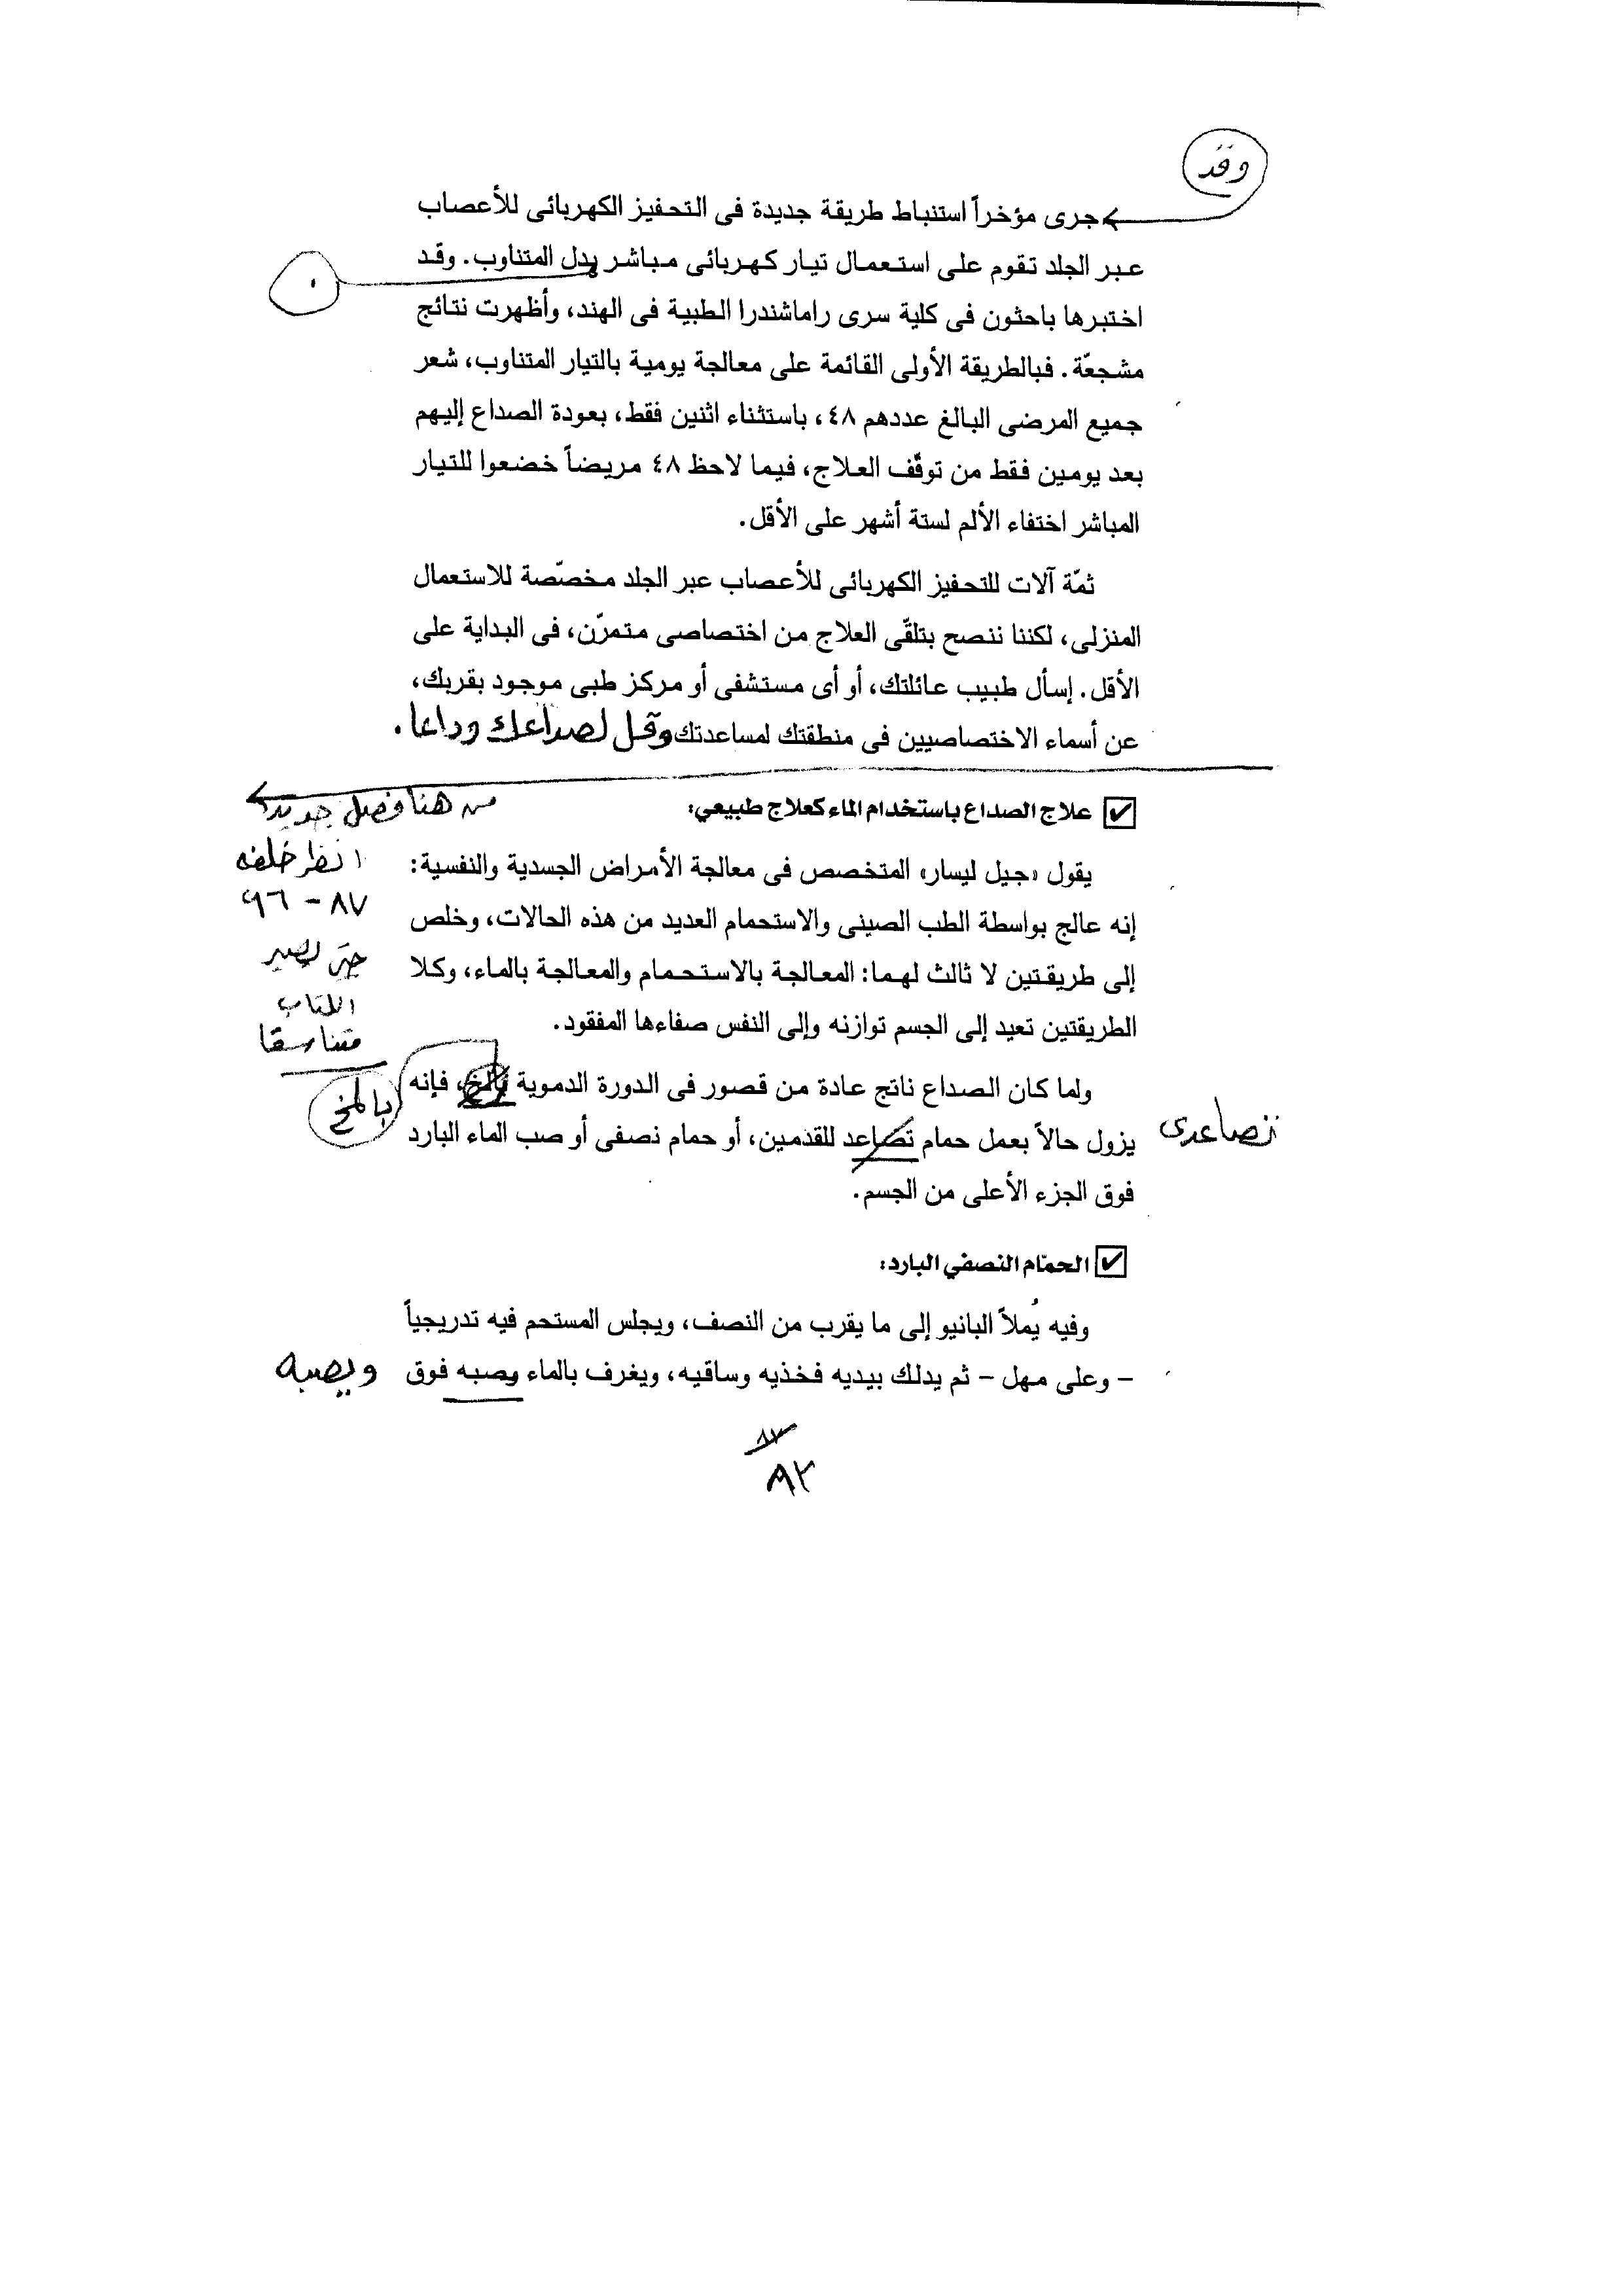 وقد
جرى مؤخراً استنباط طريقة جديدة فى التحفيز الكهربائى للأعصاب
عبر الجلد تقوم على استعمال تيار كهربائى مباشر بدل المتناوب. وقد
اختبرها باحثون فى كلية سرى راماشندرا الطبية فى الهند، وأظهرت نتائج
مشجعّة. فبالطريقة الأولى القائمة على معالجة يومية بالتيار المتناوب، شعر
جميع المرضى البالغ عددهم ٤٨، باستثناء اثنين فقط، بعودة الصداع إليهم
بعد يومين فقط من توقّف العلاج، فيما لاحظ ٤٨ مريضاً خضعوا للتيار
المباشر اختفاء الألم لستة أشهر على الأقل.
ثمّة آلات للتحفيز الكهربائى للأعصاب عبر الجلد مخصّصة للاستعمال
المنزلى، لكننا ننصح بتلقّى العلاج من اختصاصى متمرّن، فى البداية على
الأقل. إسأل طبيب عائلتك، أو أى مستشفى أو مركز طبى موجود بقربك،
عن أسماء الاختصاصيين فى منطقتك لمساعدتك وقل لصداعك وداعا.
علاج الصداع باستخدام الماء كعلاج طبيعي:
من هنا فصل جديد
يقول «جيل ليسار» المتخصص فى معالجة الأمراض الجسدية والنفسية:
انظر خلفه
إنه عالج بواسطة الطب الصينى والاستحمام العديد من هذه الحالات، وخلص
٨٧ - ٩٦
إلى طريقتين لا ثالث لهما: المعالجة بالاستحمام والمعالجة بالماء، وكلا
حتى يصير
الكتاب
الطريقتين تعيد إلى الجسم توازنه وإلى النفس صفاءها المفقود.
متناسقا
ولما كان الصداع ناتج عادة من قصور فى الدورة الدموية بالمخ، فإنه
بالمخ
يزول حالاً بعمل حمام تصاعد للقدمين، أو حمام نصفى أو صب الماء البارد
تصاعدى
فوق الجزء الأعلى من الجسم.
الحمّام النصفي البارد:
وفيه يُملأ البانيو إلى ما يقرب من النصف، ويجلس المستحم فيه تدريجياً
– وعلى مهل – ثم يدلك بيديه فخذيه وساقيه، ويغرف بالماء وصبه فوق
ويصبه
٨٧
٨٢